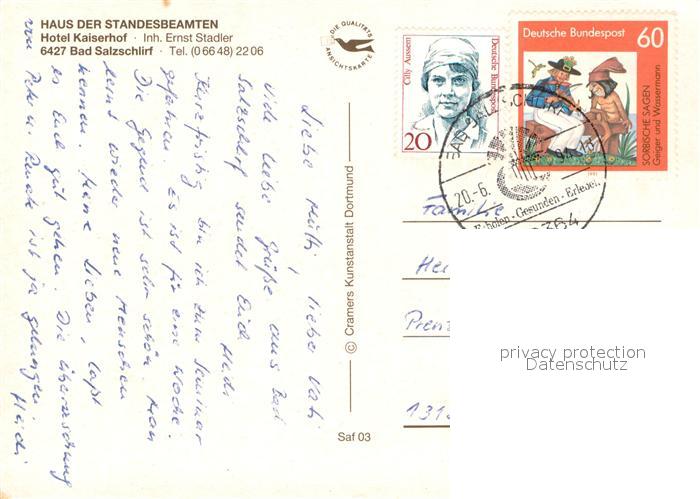 HAUS DER STANDESBEAMTEN
Hotel Kaiserhof · Inh. Ernst Stadler
6427 Bad Salzschlirf · Tel. (0 66 48) 22 06
DIE QUALITÄTS
ANSICHTSKARTE
Liebe Mutti, liebe Vati
Viele liebe Grüße aus Bad
Salzschlirf sendet Euch
Heidi
Kurzfristig bin ich zum Seminar
gefahren. Es ist für eine Woche.
Die Gegend ist sehr schön. Man
lernt wieder neue Menschen
kennen. Meine Lieben, laßt
es Euch gut gehen. Die Überraschung
von Peter ist ja gelungen.
Heidi
© Cramers Kunstanstalt Dortmund
Saf 03
Cilly Aussem
Deutsche Bundespost
20
Deutsche Bundespost
60
SORBISCHE SAGEN
Geiger und Wassermann
1991
BAD SALZSCHLIRF
20.-6.
-13
Erholen·Gesunden·Erleben
6364
Familie
Hei
Pren
131
privacy protection
Datenschutz